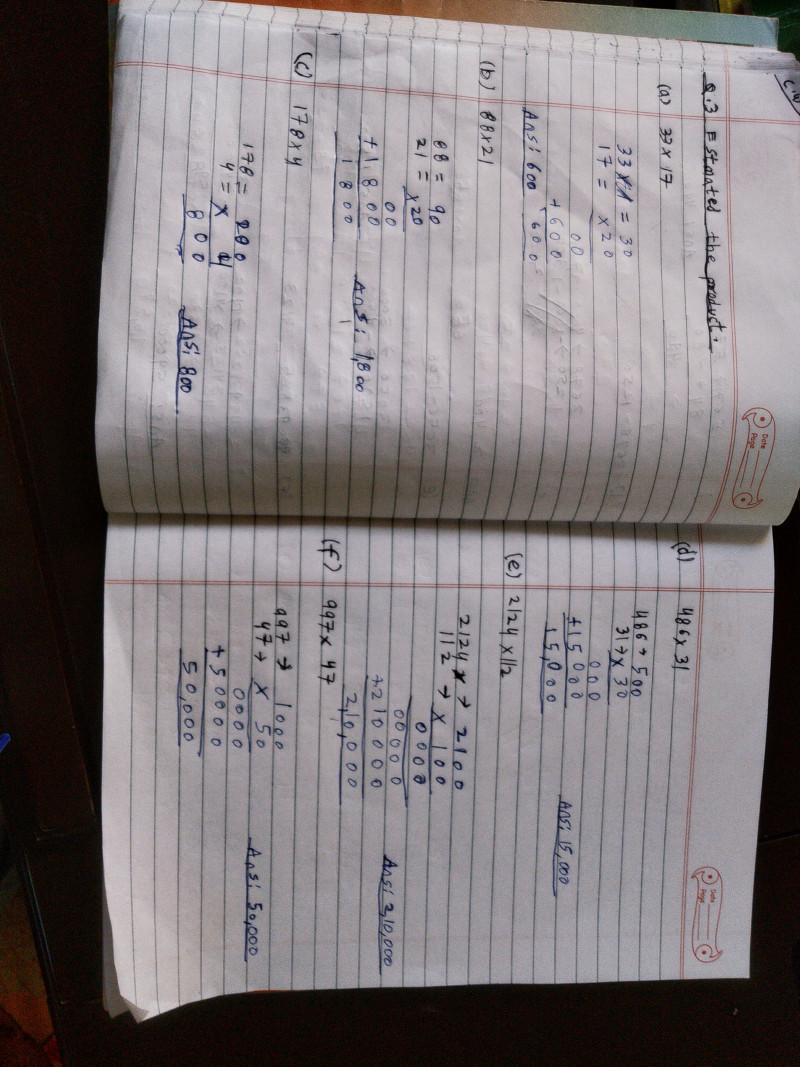 C.W
Date
Page
Q.3 Estmated the product:-
(a) 33 x 17
33 = 30
17 = x20
00
+600
600
Ans: 600
(b) 88x21
88 = 90
21 = x20
00
+1800
1800
Ans: 1,800
(c) 178x4
178 = 200
4 = x 4
800
Ans: 800
Date
Page
(d) 486x31
486 → 500
31 → x 30
000
+15000
15,000
Ans: 15,000
(e) 2124x112
2124 → 2100
112 → x 100
0000
00000
+210000
2,10,000
Ans: 2,10,000
(f) 997x 47
997 → 1000
47 → x 50
0000
+50000
50,000
Ans: 50,000